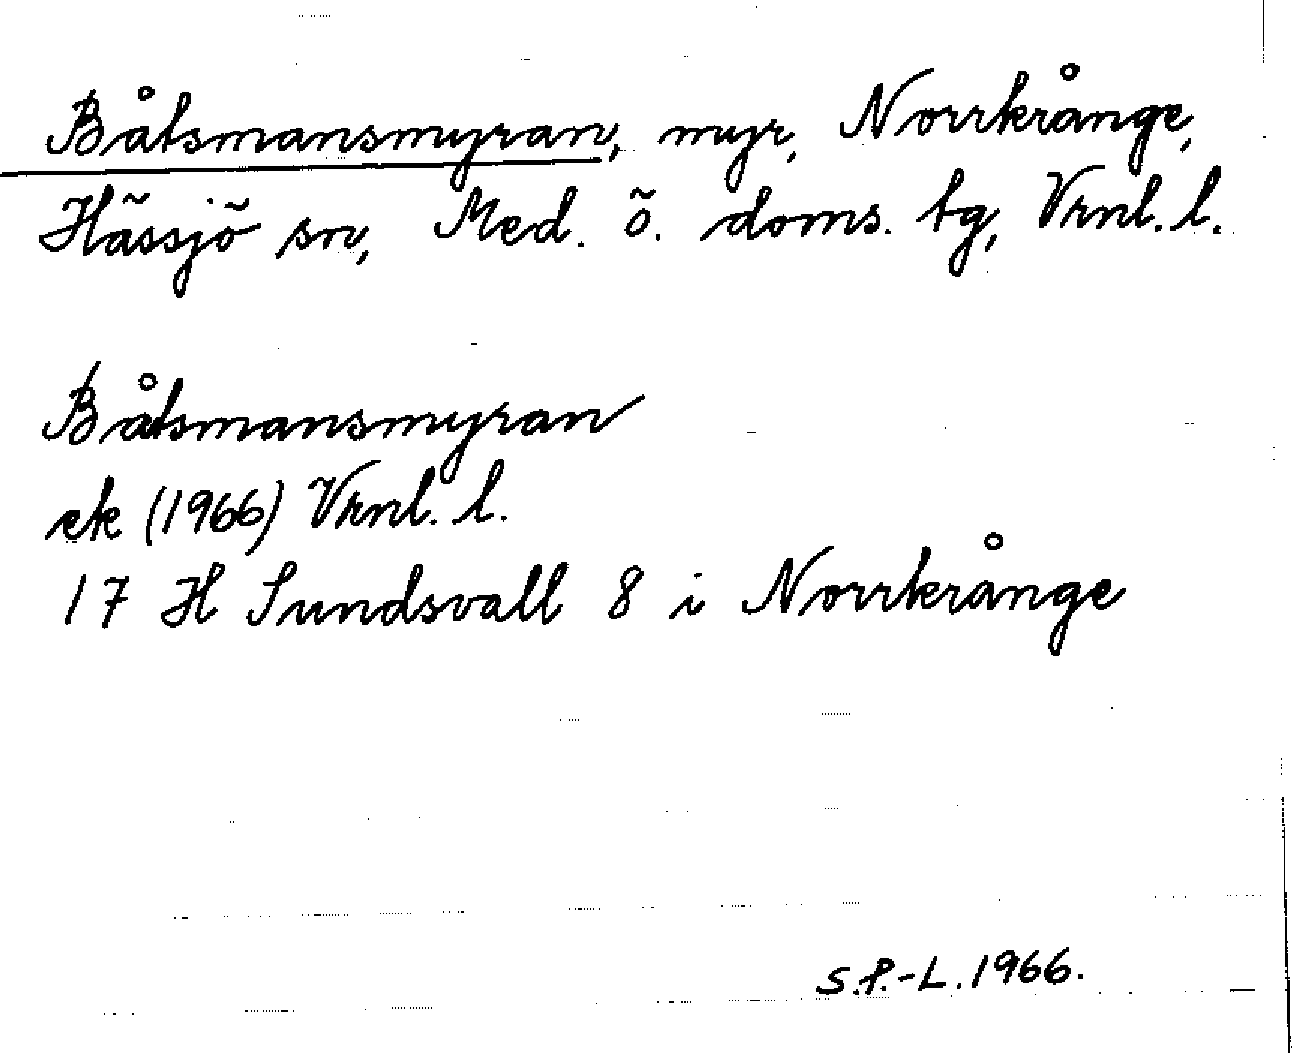 Båtsmansmyran, myr, Norrkrånge,
Hässjö sn, Med. ö. doms. tg, Vrnl. l.
Båtsmansmyran
ek (1966) Vrnl. l.
17 H Sundsvall 8 i Norrkrånge
S.P.-L. 1966.